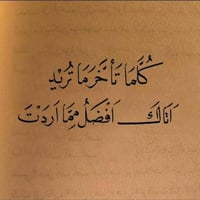 كُلَّمَا تَأَخَّرَ مَا تُرِيْدِ
اَتَاكَ اَفْضَلُ مِمَّا اَرَدْتَ